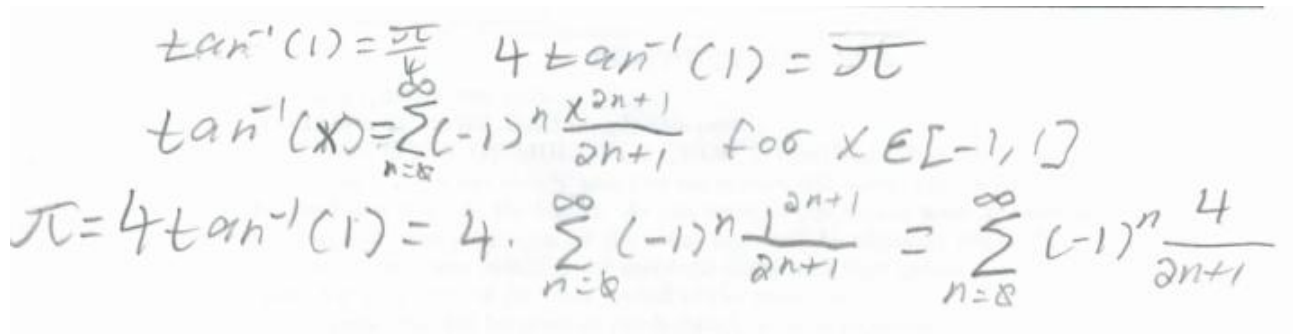 tan⁻¹(1) = π/4   4 tan⁻¹(1) = π
tan⁻¹(x) = ∑_{n=0}^{∞} (-1)^n x^{2n+1}/(2n+1) for x ∈ [-1, 1]
π = 4 tan⁻¹(1) = 4 · ∑_{n=0}^{∞} (-1)^n 1^{2n+1}/(2n+1) = ∑_{n=0}^{∞} (-1)^n 4/(2n+1)